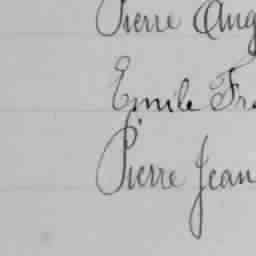 Pierre Aug
Emile Fra
Pierre Jean